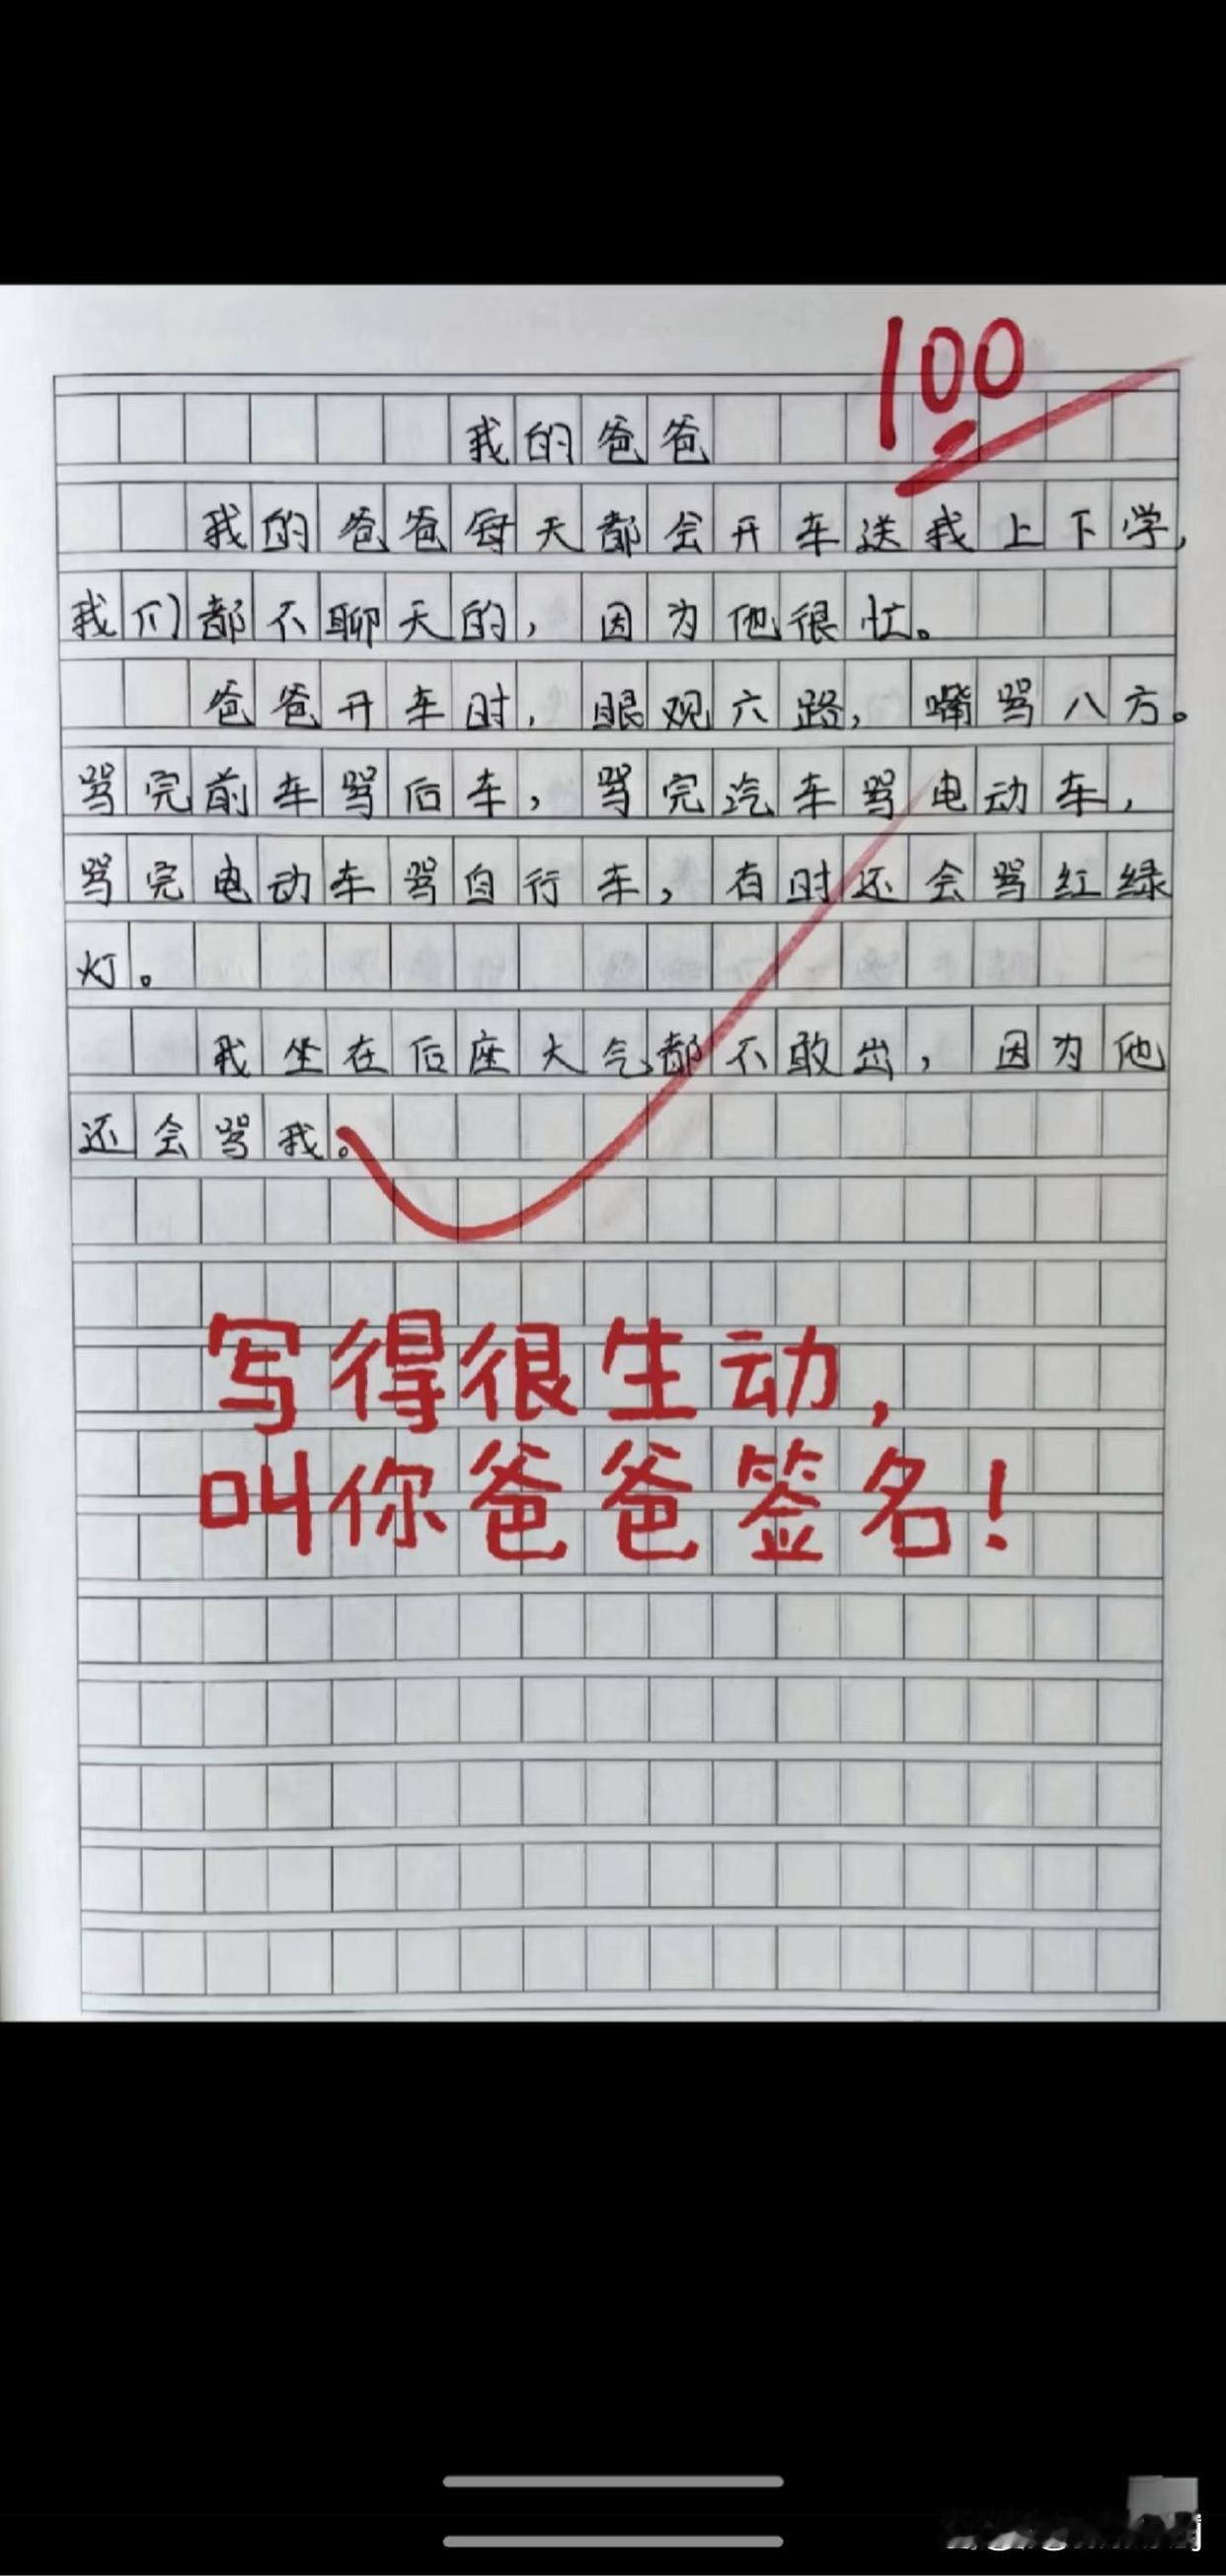 100
我的爸爸
我的爸爸每天都会开车送我上下学,
我们都不聊天的,因为他很忙。
爸爸开车时,眼观六路,嘴骂八方。
骂完前车骂后车,骂完汽车骂电动车,
骂完电动车骂自行车,有时还会骂红绿
灯。
我坐在后座大气都不敢出,因为他
还会骂我。
写得很生动,
叫你爸爸签名!